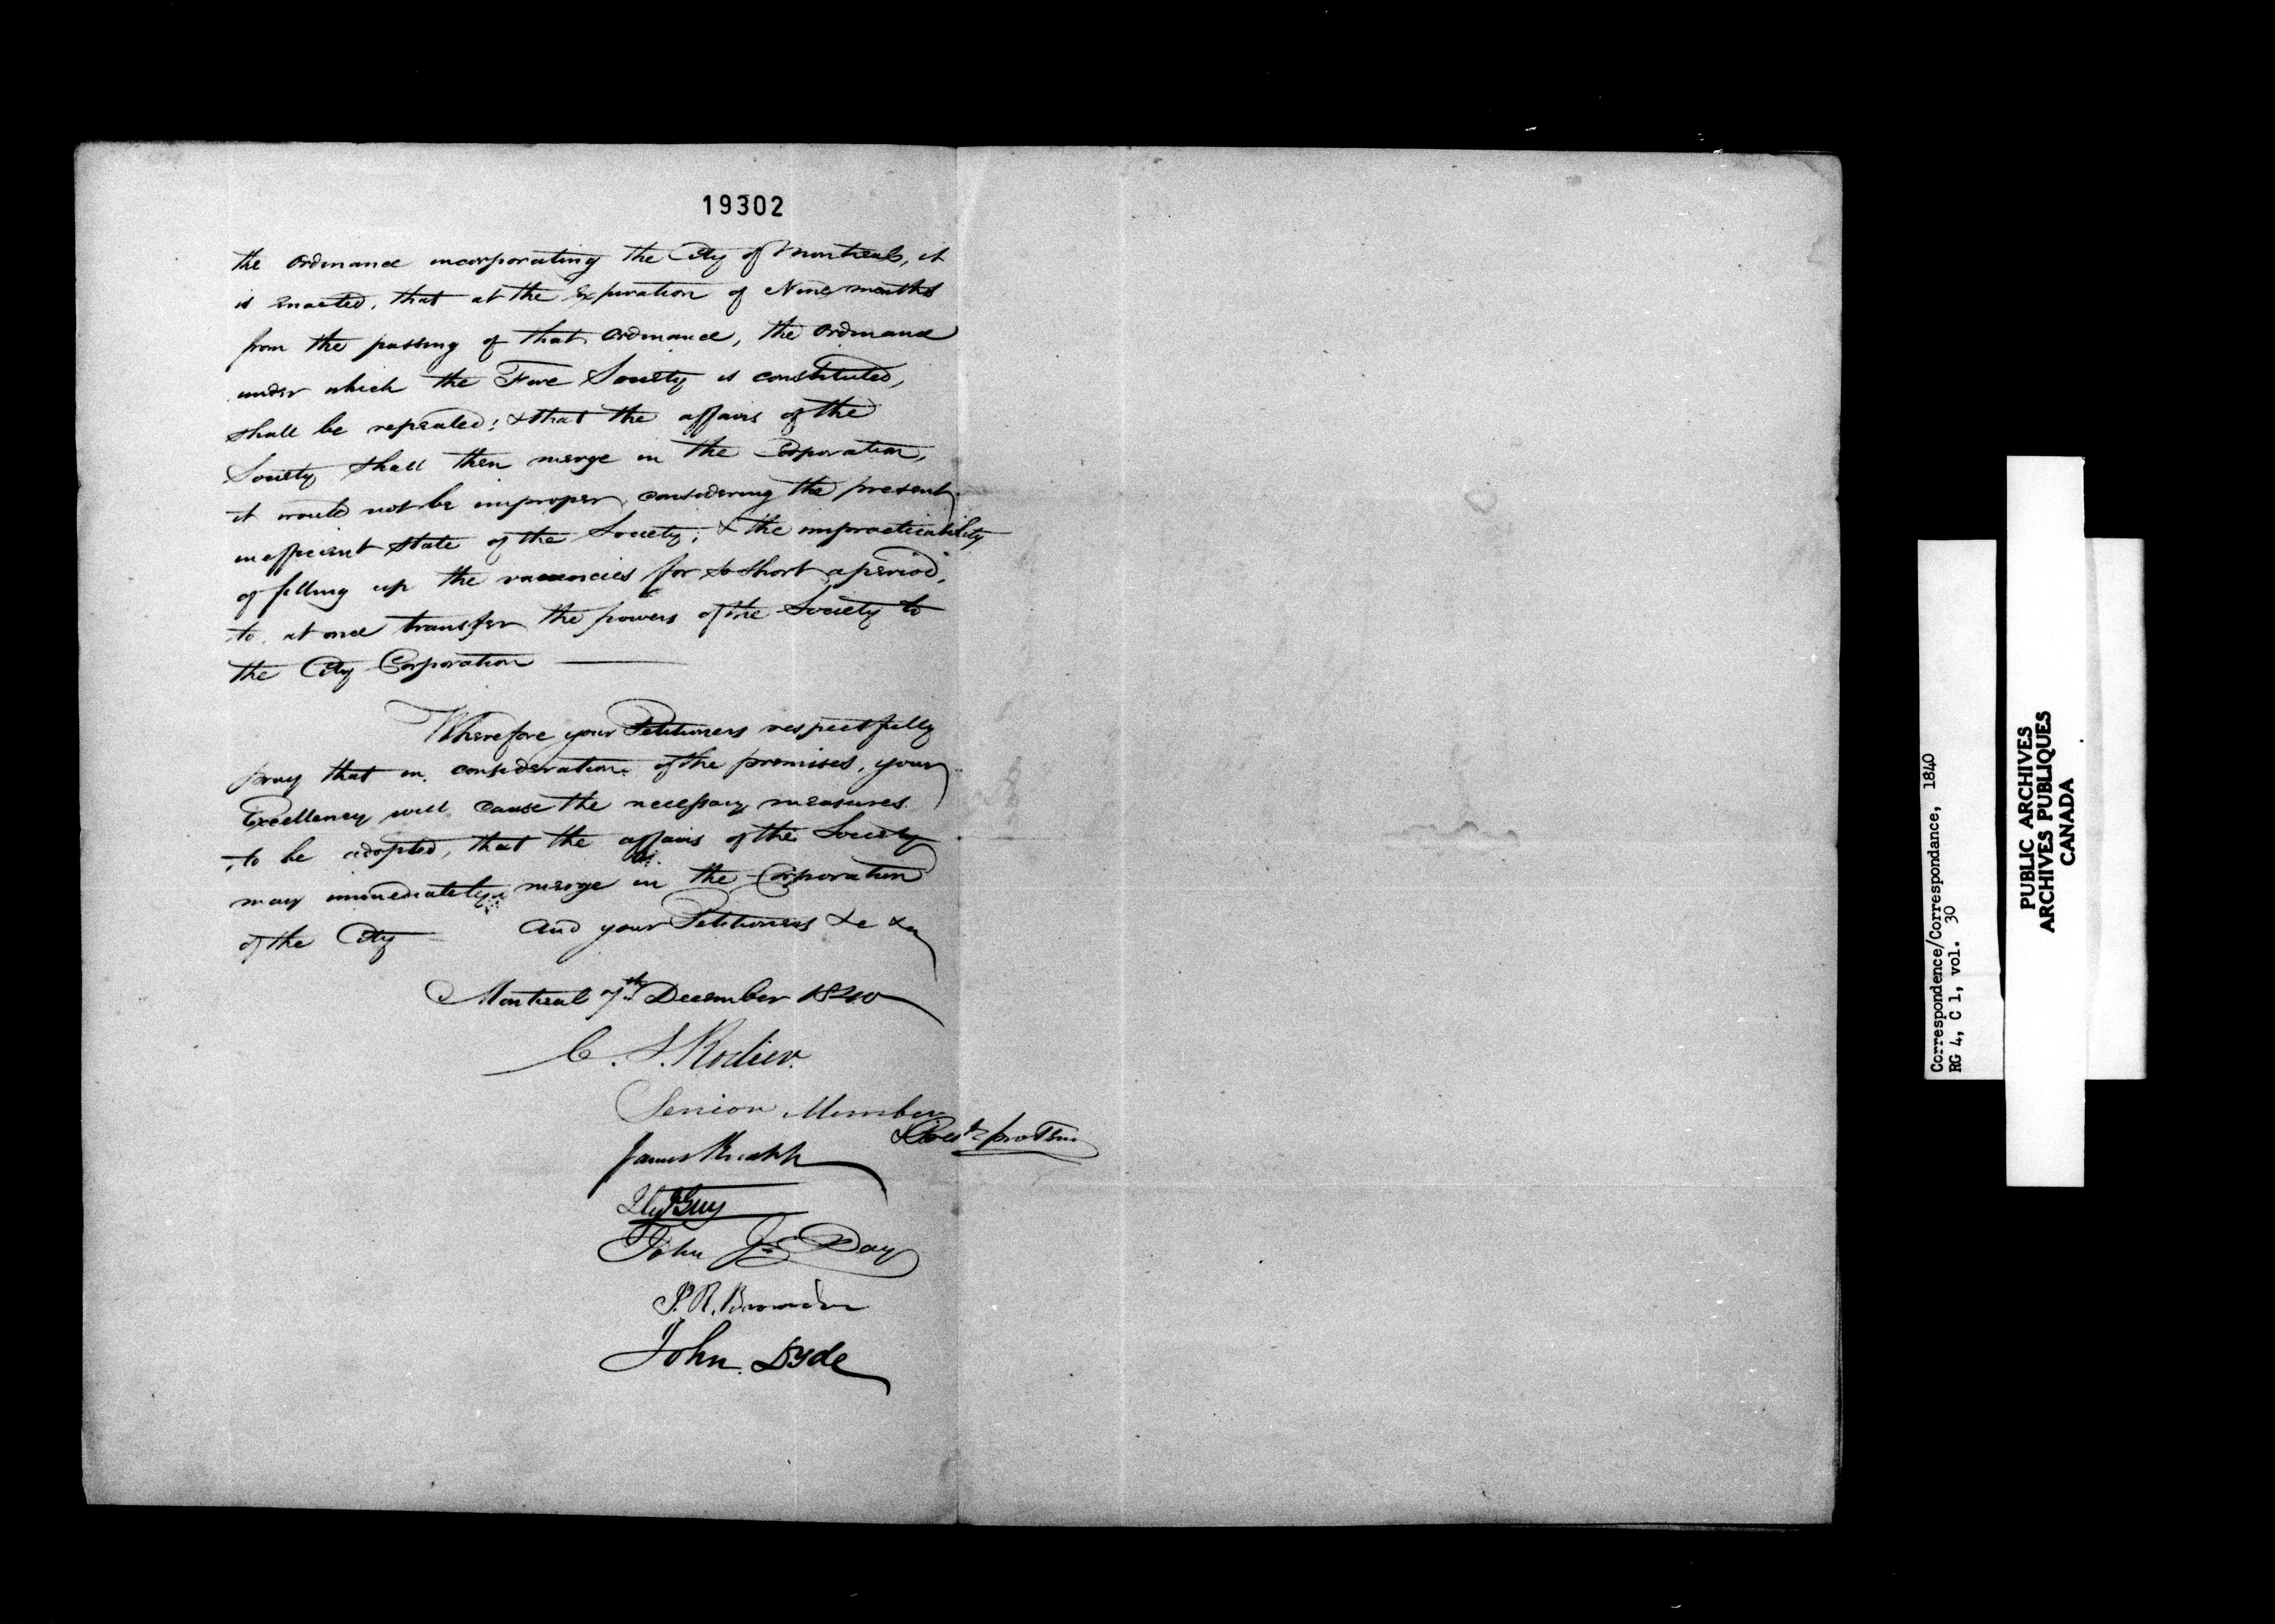 19302
the Ordinance incorporating the City of Montreal, it
is enacted, that at the expiration of Nine months
from the passing of that Ordinance, the Ordinance
under which the Fire Society is constituted,
shall be repealed; & that the affairs of the
Society shall then merge in the Corporation,
it would not be improper, considering the present
inefficient state of the Society, & the impracticability
of filling up the vacancies for so short a period,
to at once transfer the powers of the Society to
the City Corporation —
Wherefore your Petitioners respectfully
pray that in consideration of the premises, your
Excellency will cause the necessary measures
to be adopted, that the affairs of the Society
may immediately merge in the Corporation
of the City — And your Petitioners &c &c
Montreal 7th December 1840
C. S. Rodier.
Senior Member
& Presdt pro Tem
James
Guy
John Js Day
P. R.
John Dyde
Correspondence/Correspondance, 1840
RG 4, C 1, vol. 30
PUBLIC ARCHIVES
ARCHIVES PUBLIQUES
CANADA